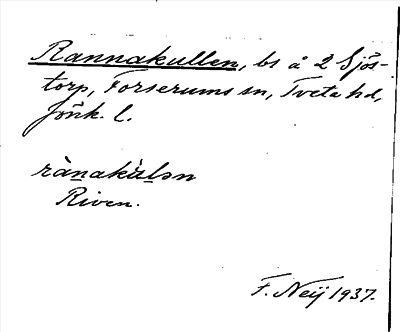 Rannakullen, bs å 2 Sjös-
torp, Forserums sn, Tveta hd,
Jönk. l.
rànakùlən
Riven.
F. Neij 1937.